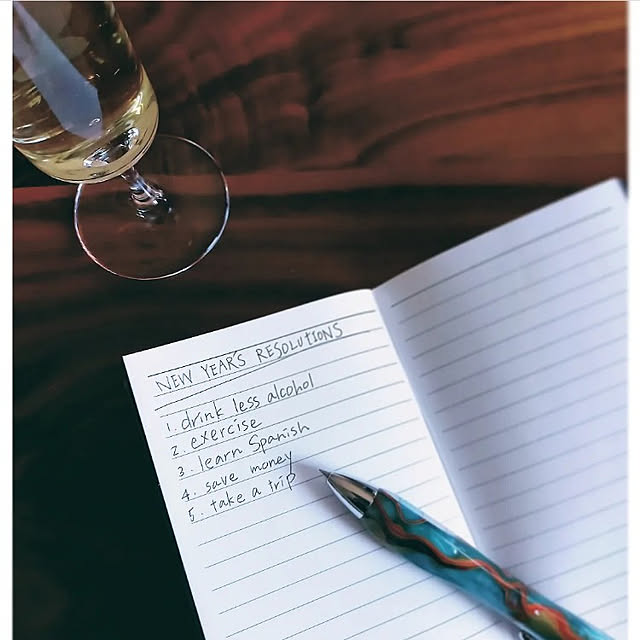 NEW YEAR'S RESOLUTIONS
1. drink less alcohol
2. exercise
3. learn Spanish
4. save money
5. take a trip